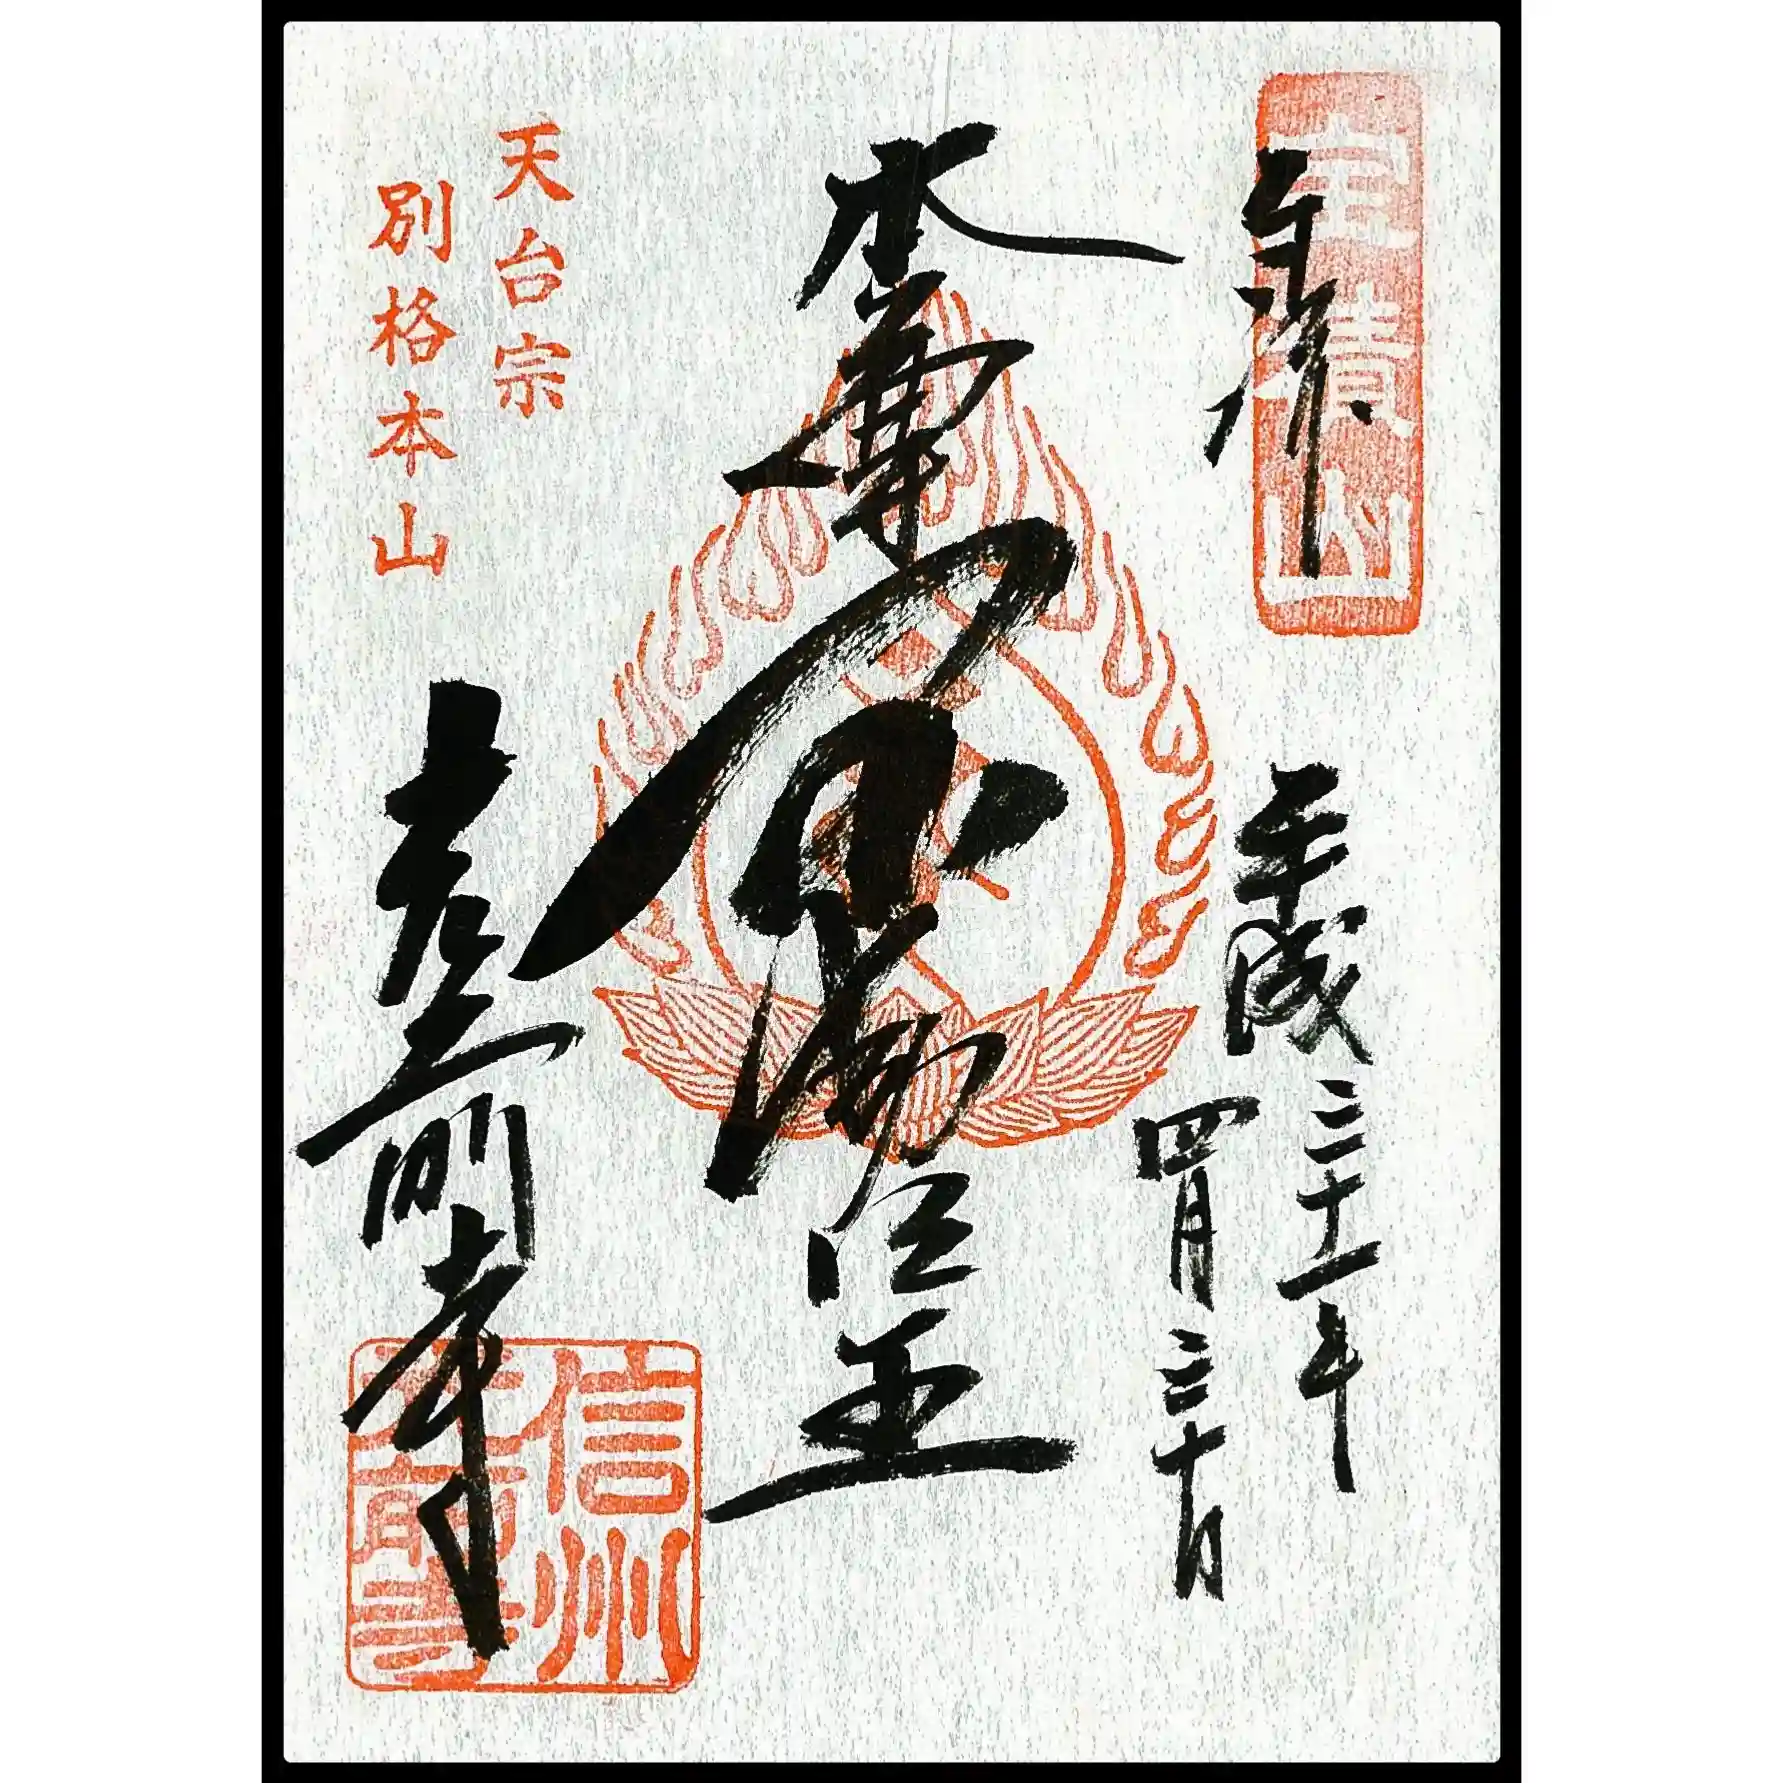 奉拝
宝積山
平成三十一年
四月三十日
本尊不動明王
天台宗
別格本山
光前寺
信州
光前寺